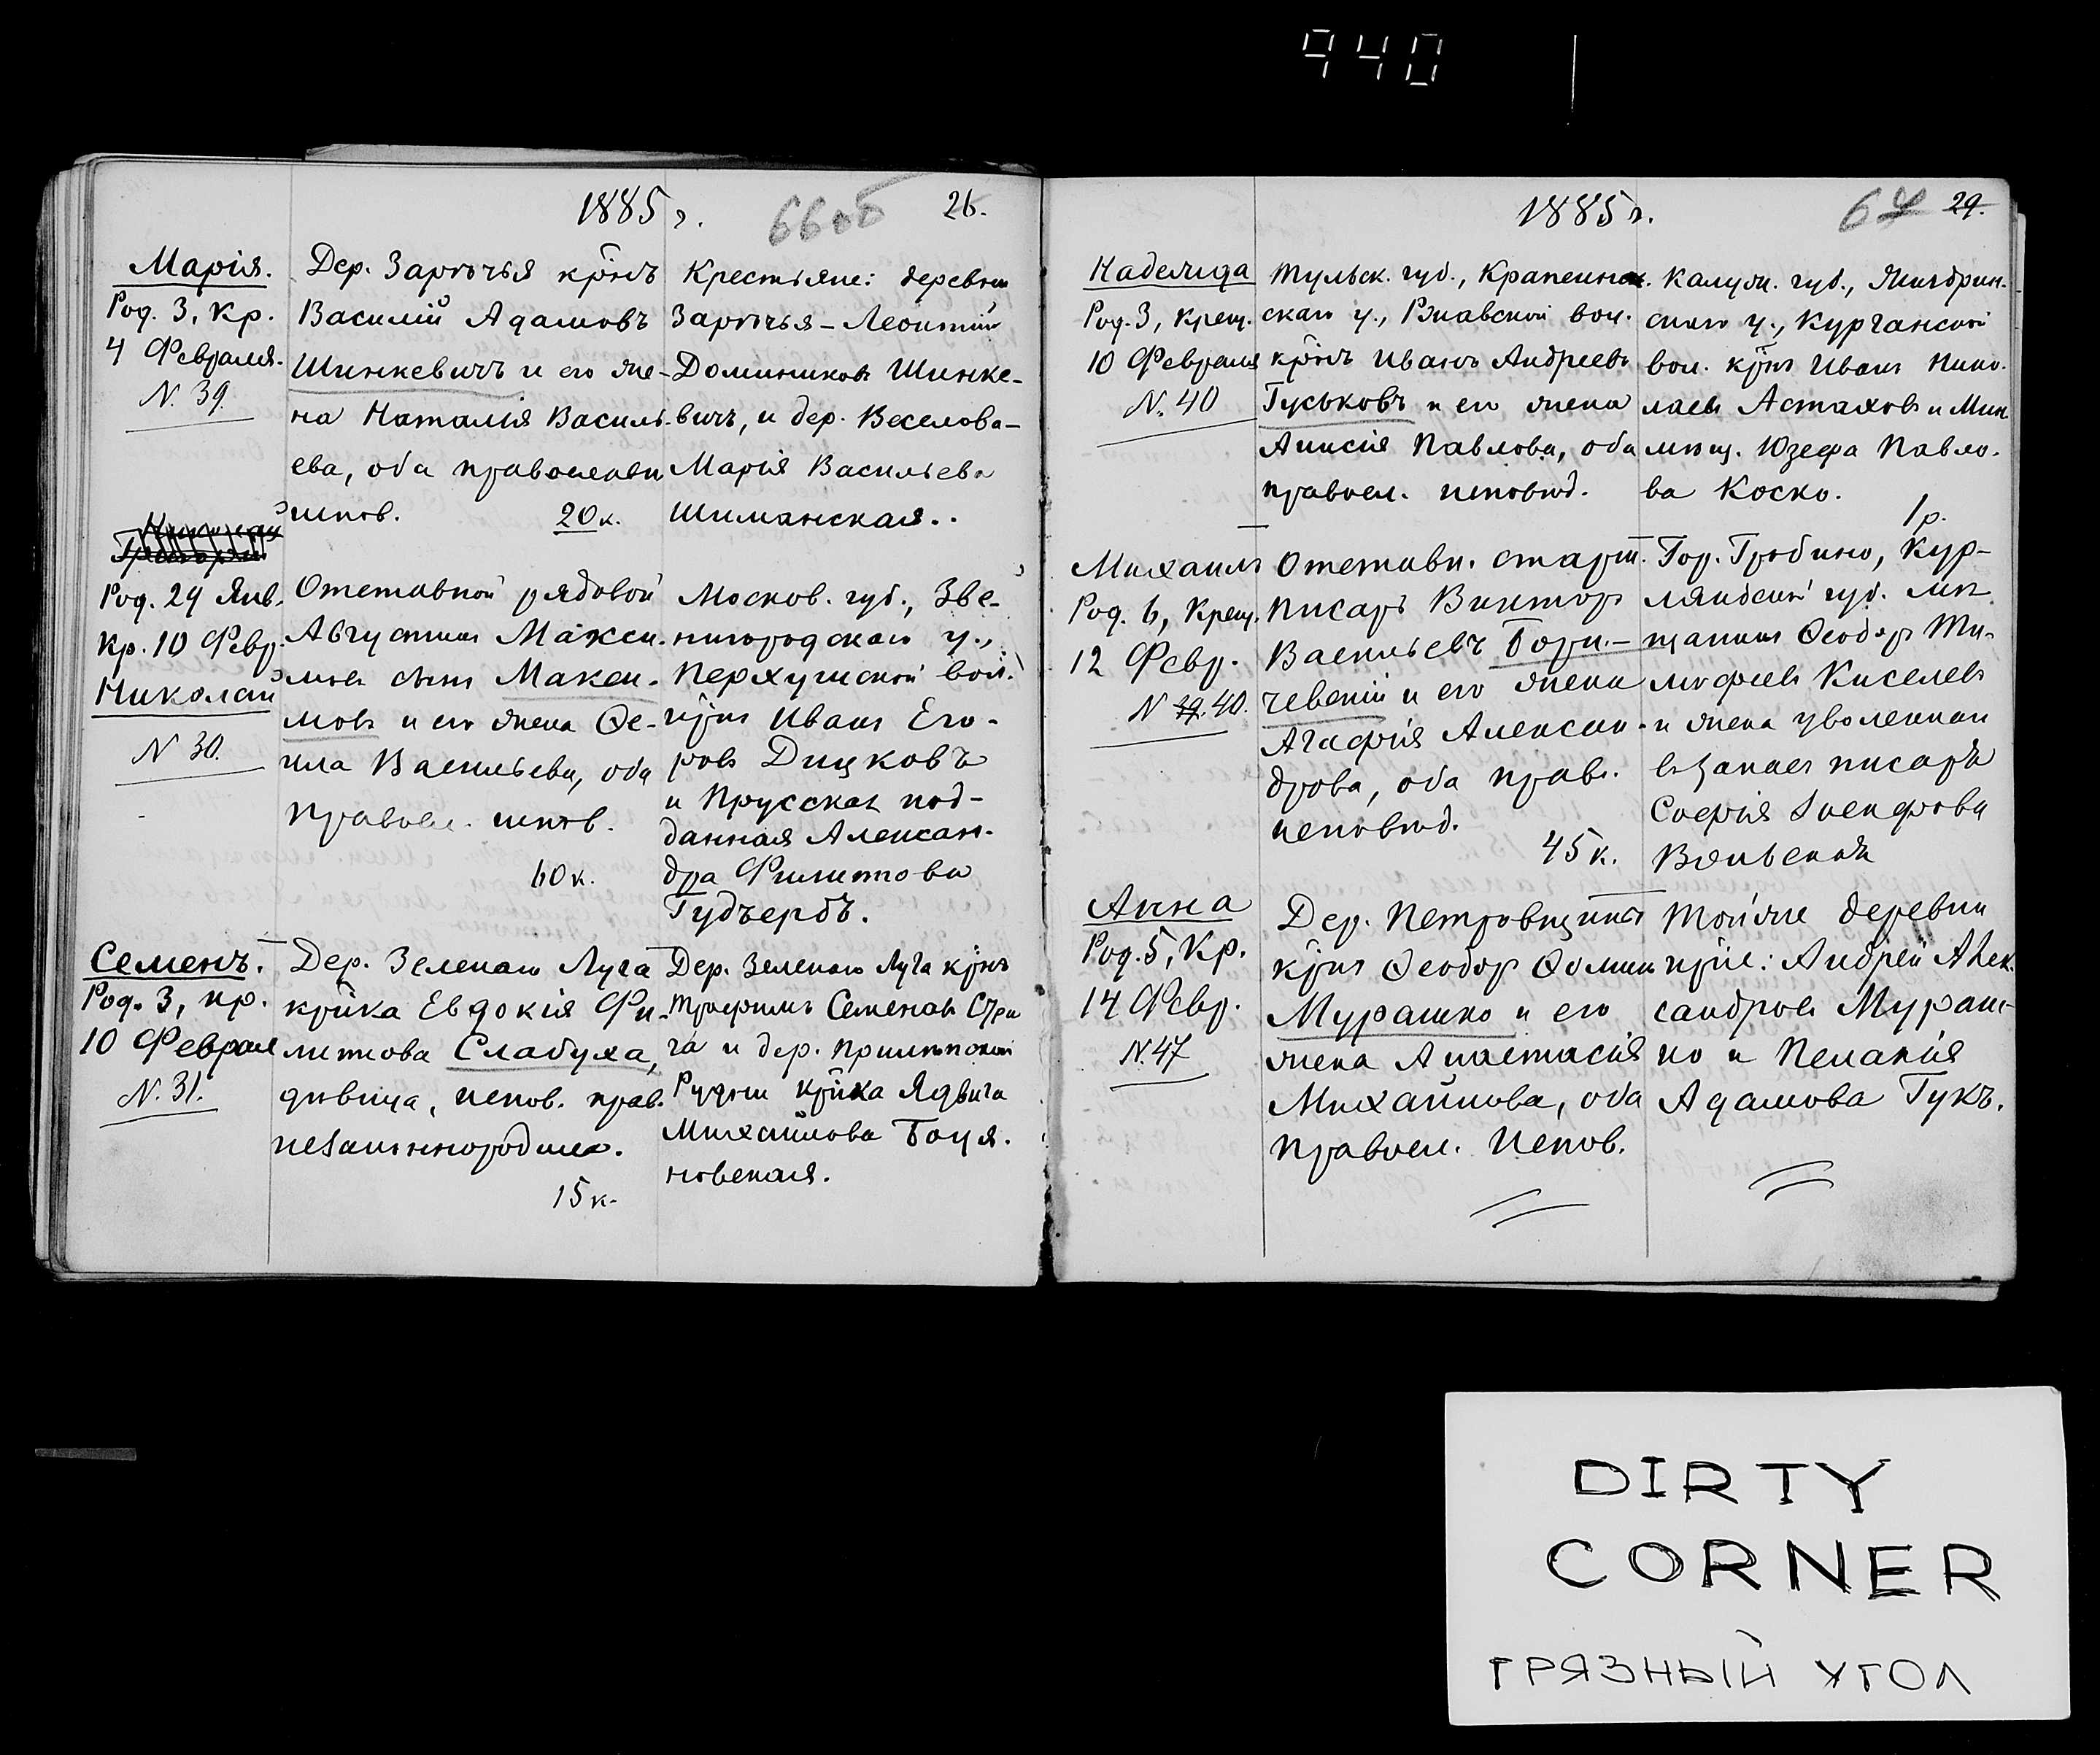 940
1885 г.
66об
26.
Марія.
Род. 3, Кр.
4 Февраля.
N. 39.
Дер. Зарѣчья кр̃нъ
Василій Адамовъ
Шинкевичъ и его же-
на Наталія Василь-
ева, оба православн
испов. 20 к.
Крестьяне: деревни
Зарѣчья – Леонтій
Доминиковъ Шинке-
вичъ, и дер. Веселова –
Марія Васильева
Шиманская..
Григорій
Род. 29 Янв.
Кр. 10 Февр.
Николай
N 30.
Отставной рядовой
Августинъ Макси-
мовъ сынъ Макси-
мовъ и его жена Ѳе-
кла Васильева, оба
правосл. испов.
60 к.
Москов. губ., Зве-
нигородскаго у.,
Перхушской вол.
кр̃нъ Иванъ Его-
ровъ Дицковъ
и Прусская под-
данная Алексан-
дра Филиппова
Гудъербъ.
Семенъ.
Род. 3, кр.
10 Февраля
N. 31.
Дер. Зеленаго Луга
кр̃нка Евдокія Фи-
липпова Слабуха,
дѣвица, испов. прав.
незаконнорожд.
15 к.
Дер. Зеленаго Луга кр̃нъ
Трофимъ Семеновъ Стри
га и дер.
кр̃нка Ядвига
Михайлова Боуя-
новская.
1885 г.
67 29.
Надежда
Род. 3, Крещ.
10 Февраля
N. 40
Тульск. губ., Крапивен-
скаго у., Ржавской вол.
кр̃нъ Иванъ Андреевъ
Гуськовъ и его жена
Анисія Павлова, оба
правосл. исповѣд.
Калуж. губ., Жиздрин-
скаго у., Курганской
вол. кр̃нъ Иванъ Нико-
лаевъ Астаховъ и Мин
мѣщ. Юзефа Павло-
ва Коско.
1 р.
Михаилъ
Род. 6, Крещ.
12 Февр.
N 39. 40.
Отставн. старш.
писарь Викторъ
Васильевъ Бори-
чевскій и его жена
Агафія Алексан-
дрова, оба прав.
исповѣд.
45 к.
Гор. Гробино, Кур-
ляндской губ. мѣ-
щанинъ Ѳеодоръ Ти-
мофеевъ Киселевъ
и жена уволеннаго
въ запасъ писаря
Софія Іосифова
Анна
Род. 5, Кр.
14 Февр.
N. 47
Дер. Петровщины
кр̃нъ Ѳеодоръ Ѳоминъ
Мурашко и его
жена Анастасія
Михайлова, оба
правосл. испов.
Той же деревни
кр̃не: Андрей Алек-
сандровъ Мураш-
ко и Пелагія
Адамова Гукъ.
DIRTY
CORNER
ГРЯЗНЫЙ УГОЛ